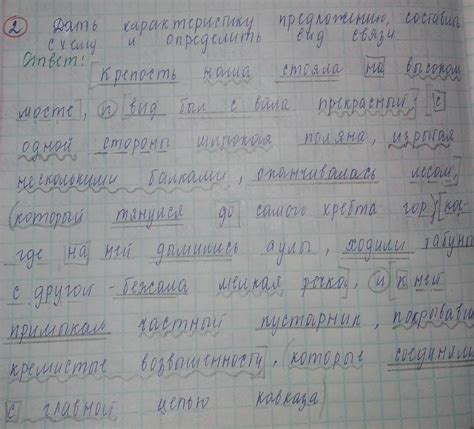 2 Дать характеристику предложению, составить
схему и определить вид связи
Ответ:
[Крепость наша стояла на высоком
мосте], и [вид был с вала прекрасный] [с
одной стороны широкая поляна, изрытая
несколькими балками, оканчивалась лесом,]
(который тянулся до самого хребта гор) [кое
где на ней дымились аулы, ходили табуны
с другой - бежала мелкая речка], и [к ней
примыкал частный кустарник, покрывав
кремнистые возвышенности], (которые соединял
с главной цепью кавказа)